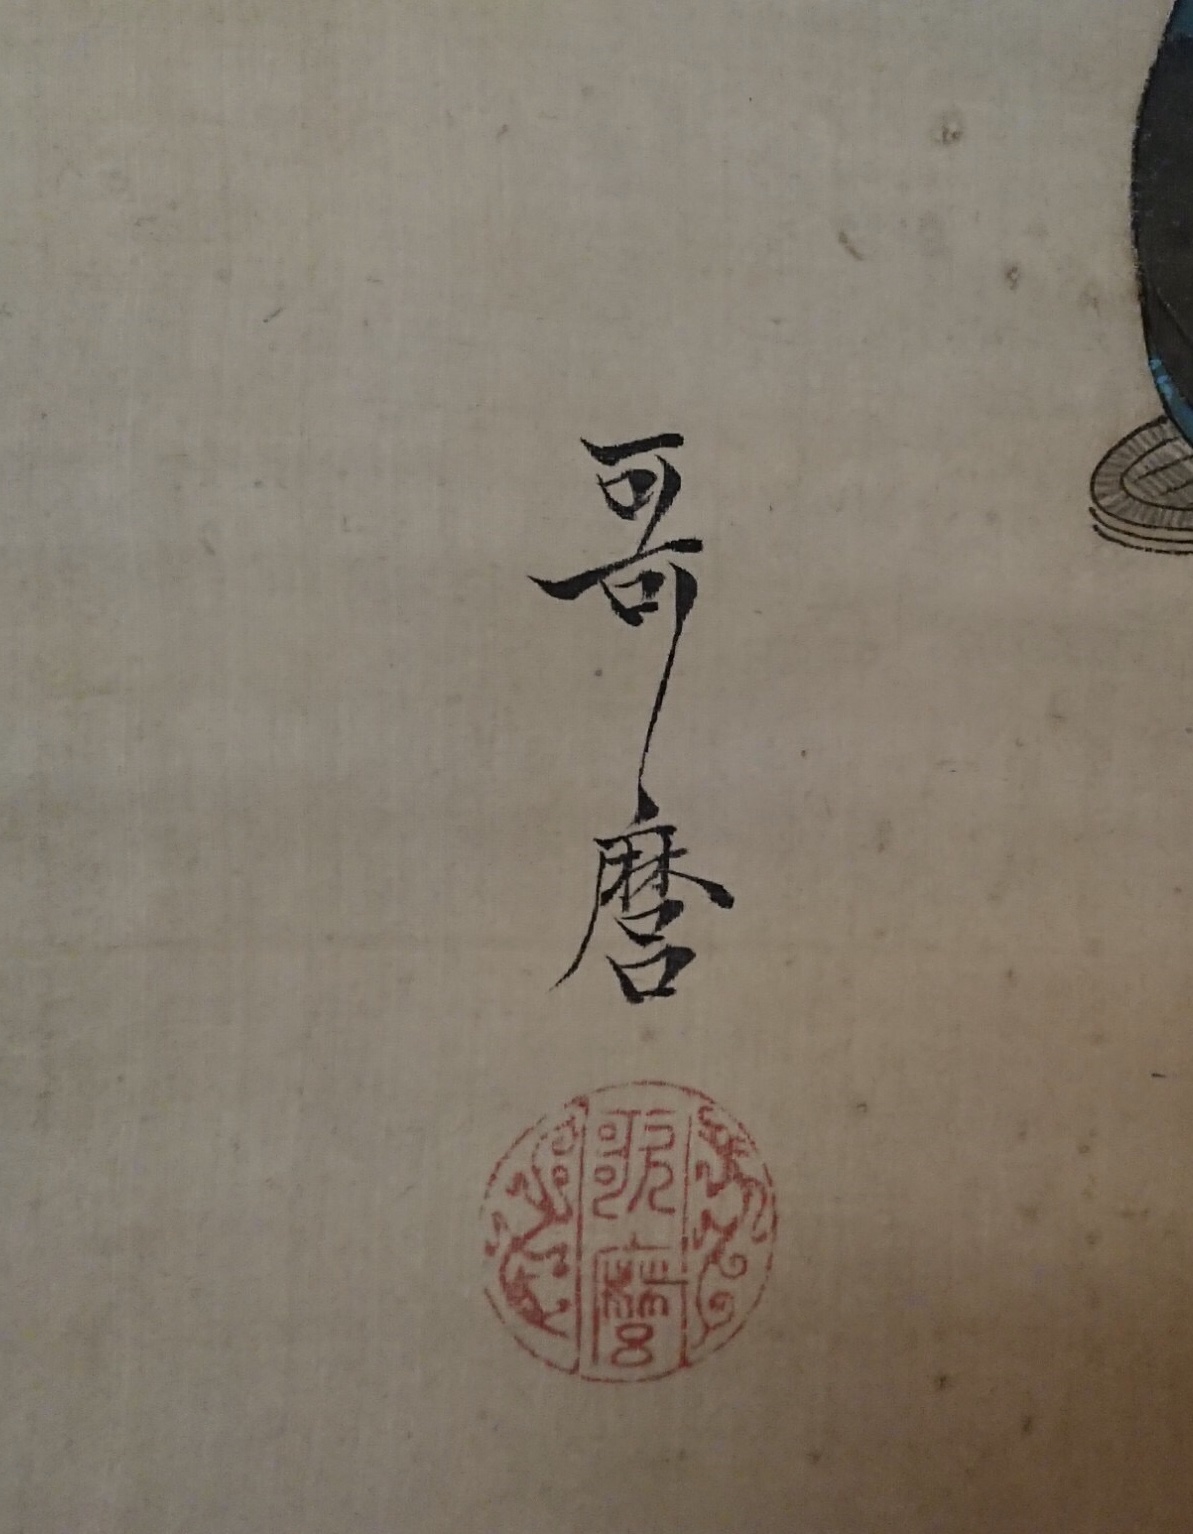 哥麿
歌麿